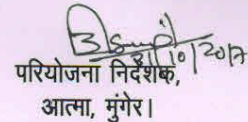 31/10/2017
परियोजना निर्देशक,
आत्मा, मुंगेर।